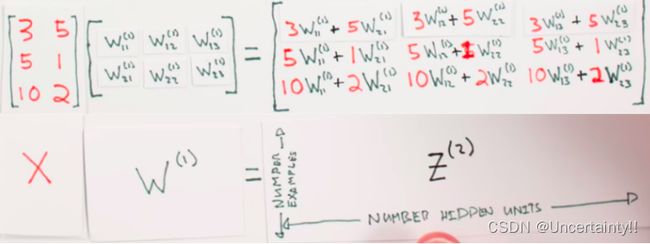 [3 5] [W₁₁⁽¹⁾ W₁₂⁽¹⁾ W₁₃⁽¹⁾] = [3W₁₁⁽¹⁾ + 5W₂₁⁽¹⁾ 3W₁₂⁽¹⁾ + 5W₂₂⁽¹⁾ 3W₁₃⁽¹⁾ + 5W₂₃⁽¹⁾]
[5 1] [W₂₁⁽¹⁾ W₂₂⁽¹⁾ W₂₃⁽¹⁾] [5W₁₁⁽¹⁾ + 1W₂₁⁽¹⁾ 5W₁₂⁽¹⁾ + 1W₂₂⁽¹⁾ 5W₁₃⁽¹⁾ + 1W₂₃⁽¹⁾]
[10 2] [10W₁₁⁽¹⁾ + 2W₂₁⁽¹⁾ 10W₁₂⁽¹⁾ + 2W₂₂⁽¹⁾ 10W₁₃⁽¹⁾ + 2W₂₃⁽¹⁾]
X W⁽¹⁾ = Z⁽²⁾
NUMBER
EXAMPLES
NUMBER HIDDEN UNITS
CSDN @Uncertainty!!